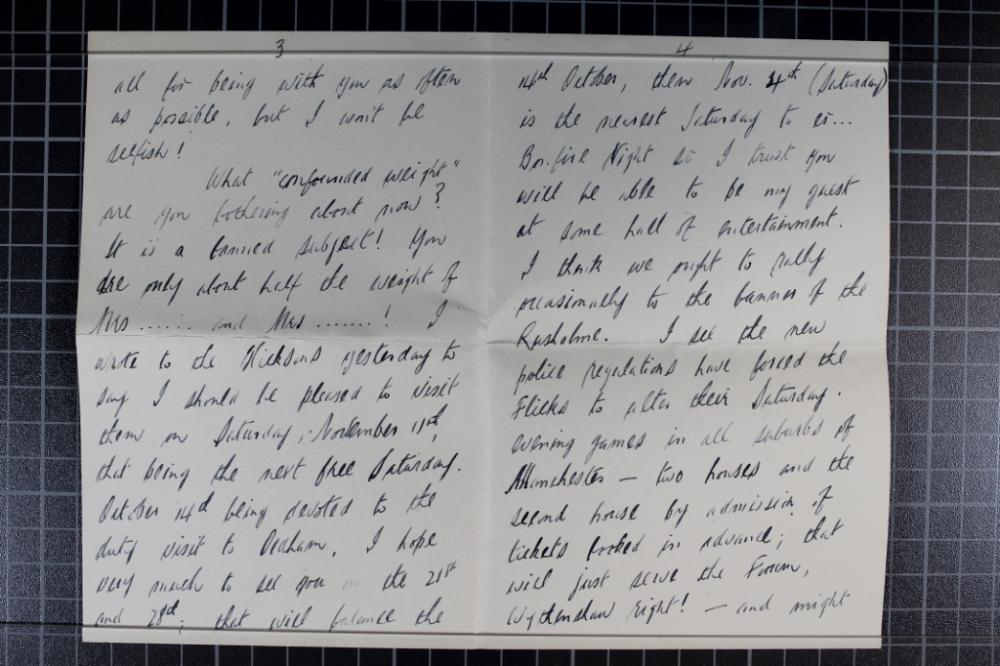 3
all for being with you as often
as possible, but I won't be
selfish!
What "confounded weight"
are you bothering about now?
It is a banned subject! You
are only about half the weight of
Mrs ...... and Mrs .......! I
wrote to the Hicksons yesterday to
say I should be pleased to visit
them on Saturday, November 11th,
that being the next free Saturday.
October 14th being devoted to the
duty visit to I hope
very much to see you on the 21st
and 28th; that will balance the
4
14th October, then Nov. 4th (Saturday)
is the nearest Saturday to er...
Bonfire Night so I trust you
will be able to be my guest
at some hall of entertainment.
I think we ought to rally
occasionally to the banner of the
Rusholme. I see the new
police regulations have forced the
Flicks to alter their Saturday
evening games in all suburbs of
Manchester — two houses and the
second house by admission of
tickets booked in advance; that
will just serve the Forum,
Wythenshaw right! — and might